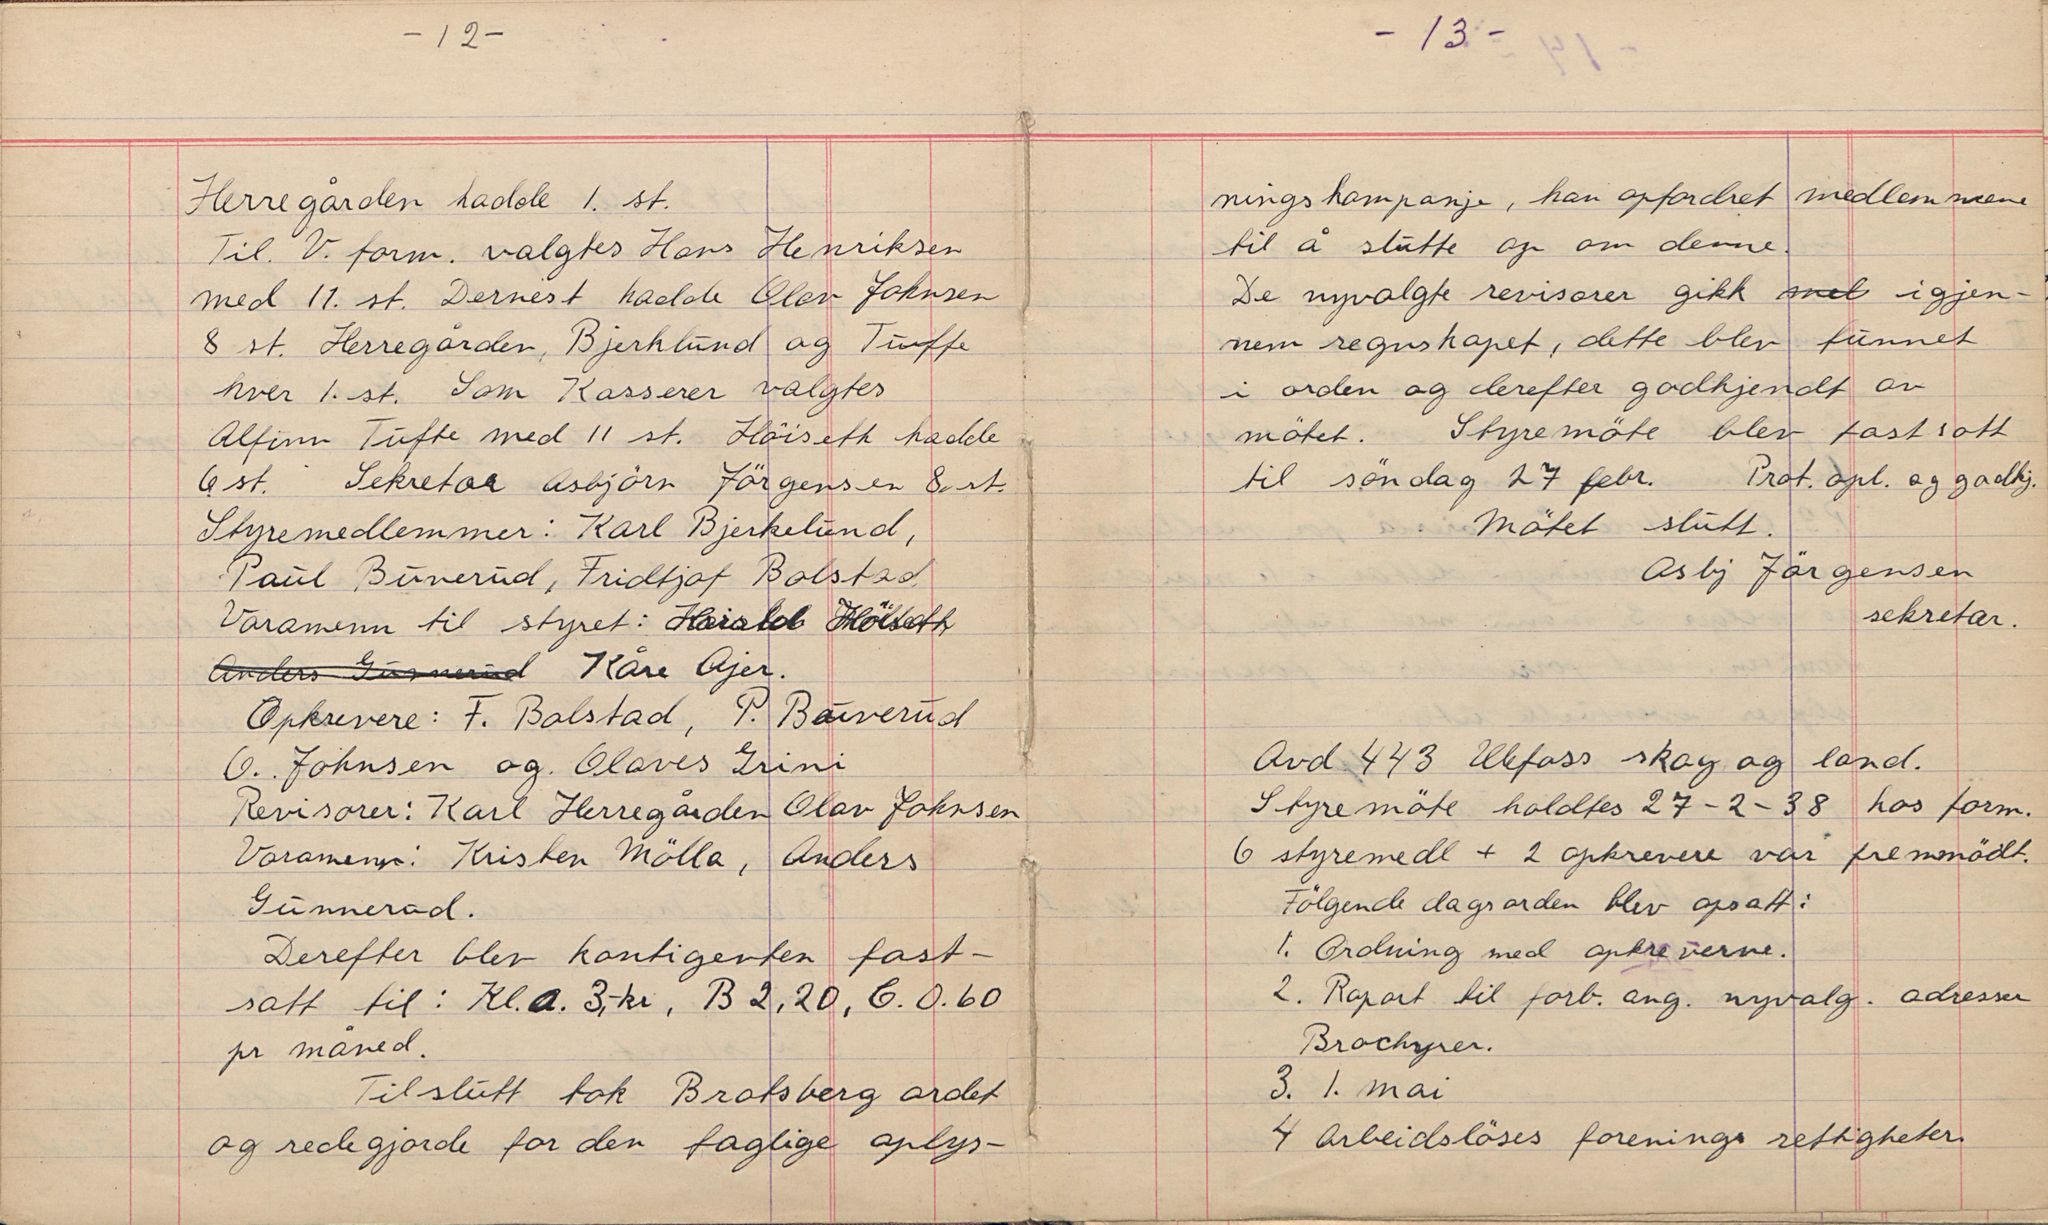 - 12 -
Herregården hadde 1. st.
Til. V. form. valgtes Hans Henriksen
med 11. st. Dernest hadde Olav Johnsen
8 st. Herregården, Bjerklund og Tufte
hver 1. st. Som Kasserer valgtes
Alfinn Tufte med 11 st. Höiseth hadde
6 st. Sekretær Asbjörn Jörgensen 8. st.
Styremedlemmer: Karl Bjerkelund,
Paul Buverud, Fridtjof Bolstad
Varamenn til styret: Harald Höiseth
Anders Gunnerud Kåre Ajer.
Opkrevere: F. Bolstad, P. Buverud
O. Johnsen og. Olaves Grini
Revisorer: Karl Herregården Olav Johnsen
Varamenn: Kristen Mölla, Anders
Gunnerud.
Derefter blev kontigenten fast-
satt til: Kl. a. 3,-kr, B 2,20, C. 0.60
pr måned.
Tilslutt tok Bratsberg ordet
og redegjorde for den faglige oplys-
- 13 -
ningskampanje, han opfordret medlemmene
til å slutte op om denne.
De nyvalgte revisorer gikk med igjen-
nem regnskapet, dette blev funnet
i orden og derefter godkjendt av
mötet. Styremöte blev fastsatt
til söndag 27 febr. Prot. opl. og godkj.
Mötet slutt.
Asbj Jörgensen
sekretær.
Avd. 443 Ulefoss skog og land.
Styremöte holdtes 27-2-38 hos form.
6 styremedl + 2 opkrevere var fremmödt.
Fölgende dagsorden blev opsatt:
1. Ordning med opkreverne.
2. Raport til forb. ang. nyvalg. adresser
Brochyrer.
3. 1. mai
4 Arbeidslöses forenings rettigheter.